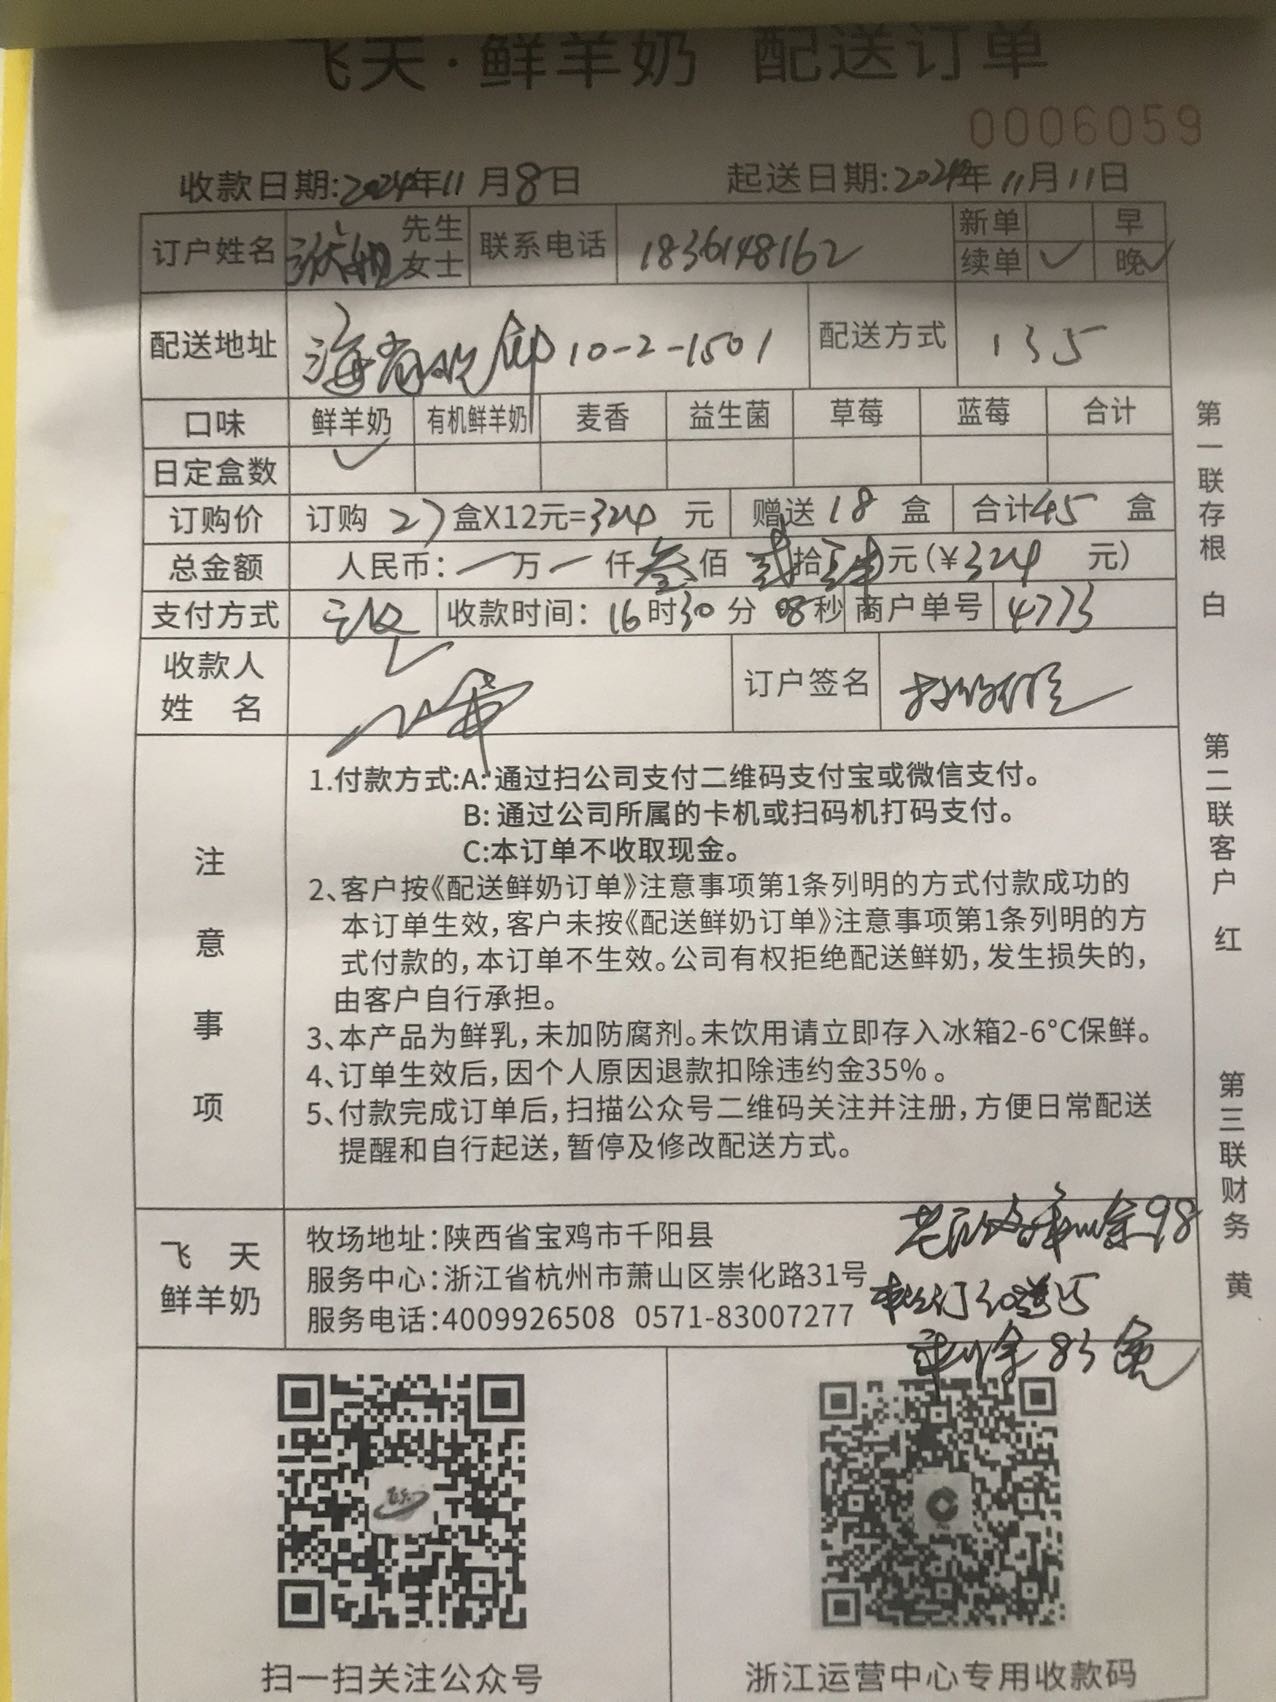 飞天·鲜羊奶 配送订单
0006059
收款日期:2024年11月8日 起送日期:2024年11月11日
订户姓名 先生 女士 联系电话 1836148162 新单 早
续单 ✓ 晚 ✓
配送地址 10-2-1501 配送方式 135
口味 鲜羊奶 有机鲜羊奶 麦香 益生菌 草莓 蓝莓 合计
日定盒数 ✓
订购价 订购 27 盒X12元=324 元 赠送 18 盒 合计 45 盒
总金额 人民币: 一 万 一 仟 叁 佰 贰 拾 元(¥324 元)
支付方式 收款时间: 16 时 30 分 08 秒 商户单号 4773
收款人
姓 名 订户签名
注意事项
1.付款方式:A: 通过扫公司支付二维码支付宝或微信支付。
B: 通过公司所属的卡机或扫码机打码支付。
C:本订单不收取现金。
2、客户按《配送鲜奶订单》注意事项第1条列明的方式付款成功的
本订单生效,客户未按《配送鲜奶订单》注意事项第1条列明的方
式付款的,本订单不生效。公司有权拒绝配送鲜奶,发生损失的,
由客户自行承担。
3、本产品为鲜乳,未加防腐剂。未饮用请立即存入冰箱2-6°C保鲜。
4、订单生效后,因个人原因退款扣除违约金35% 。
5、付款完成订单后,扫描公众号二维码关注并注册,方便日常配送
提醒和自行起送,暂停及修改配送方式。
飞 天
鲜羊奶
牧场地址:陕西省宝鸡市千阳县
服务中心:浙江省杭州市萧山区崇化路31号
服务电话:4009926508 0571-83007277
余98
订30送15
余83盒
扫一扫关注公众号
浙江运营中心专用收款码
第一联存根 白
第二联客户 红
第三联财务 黄